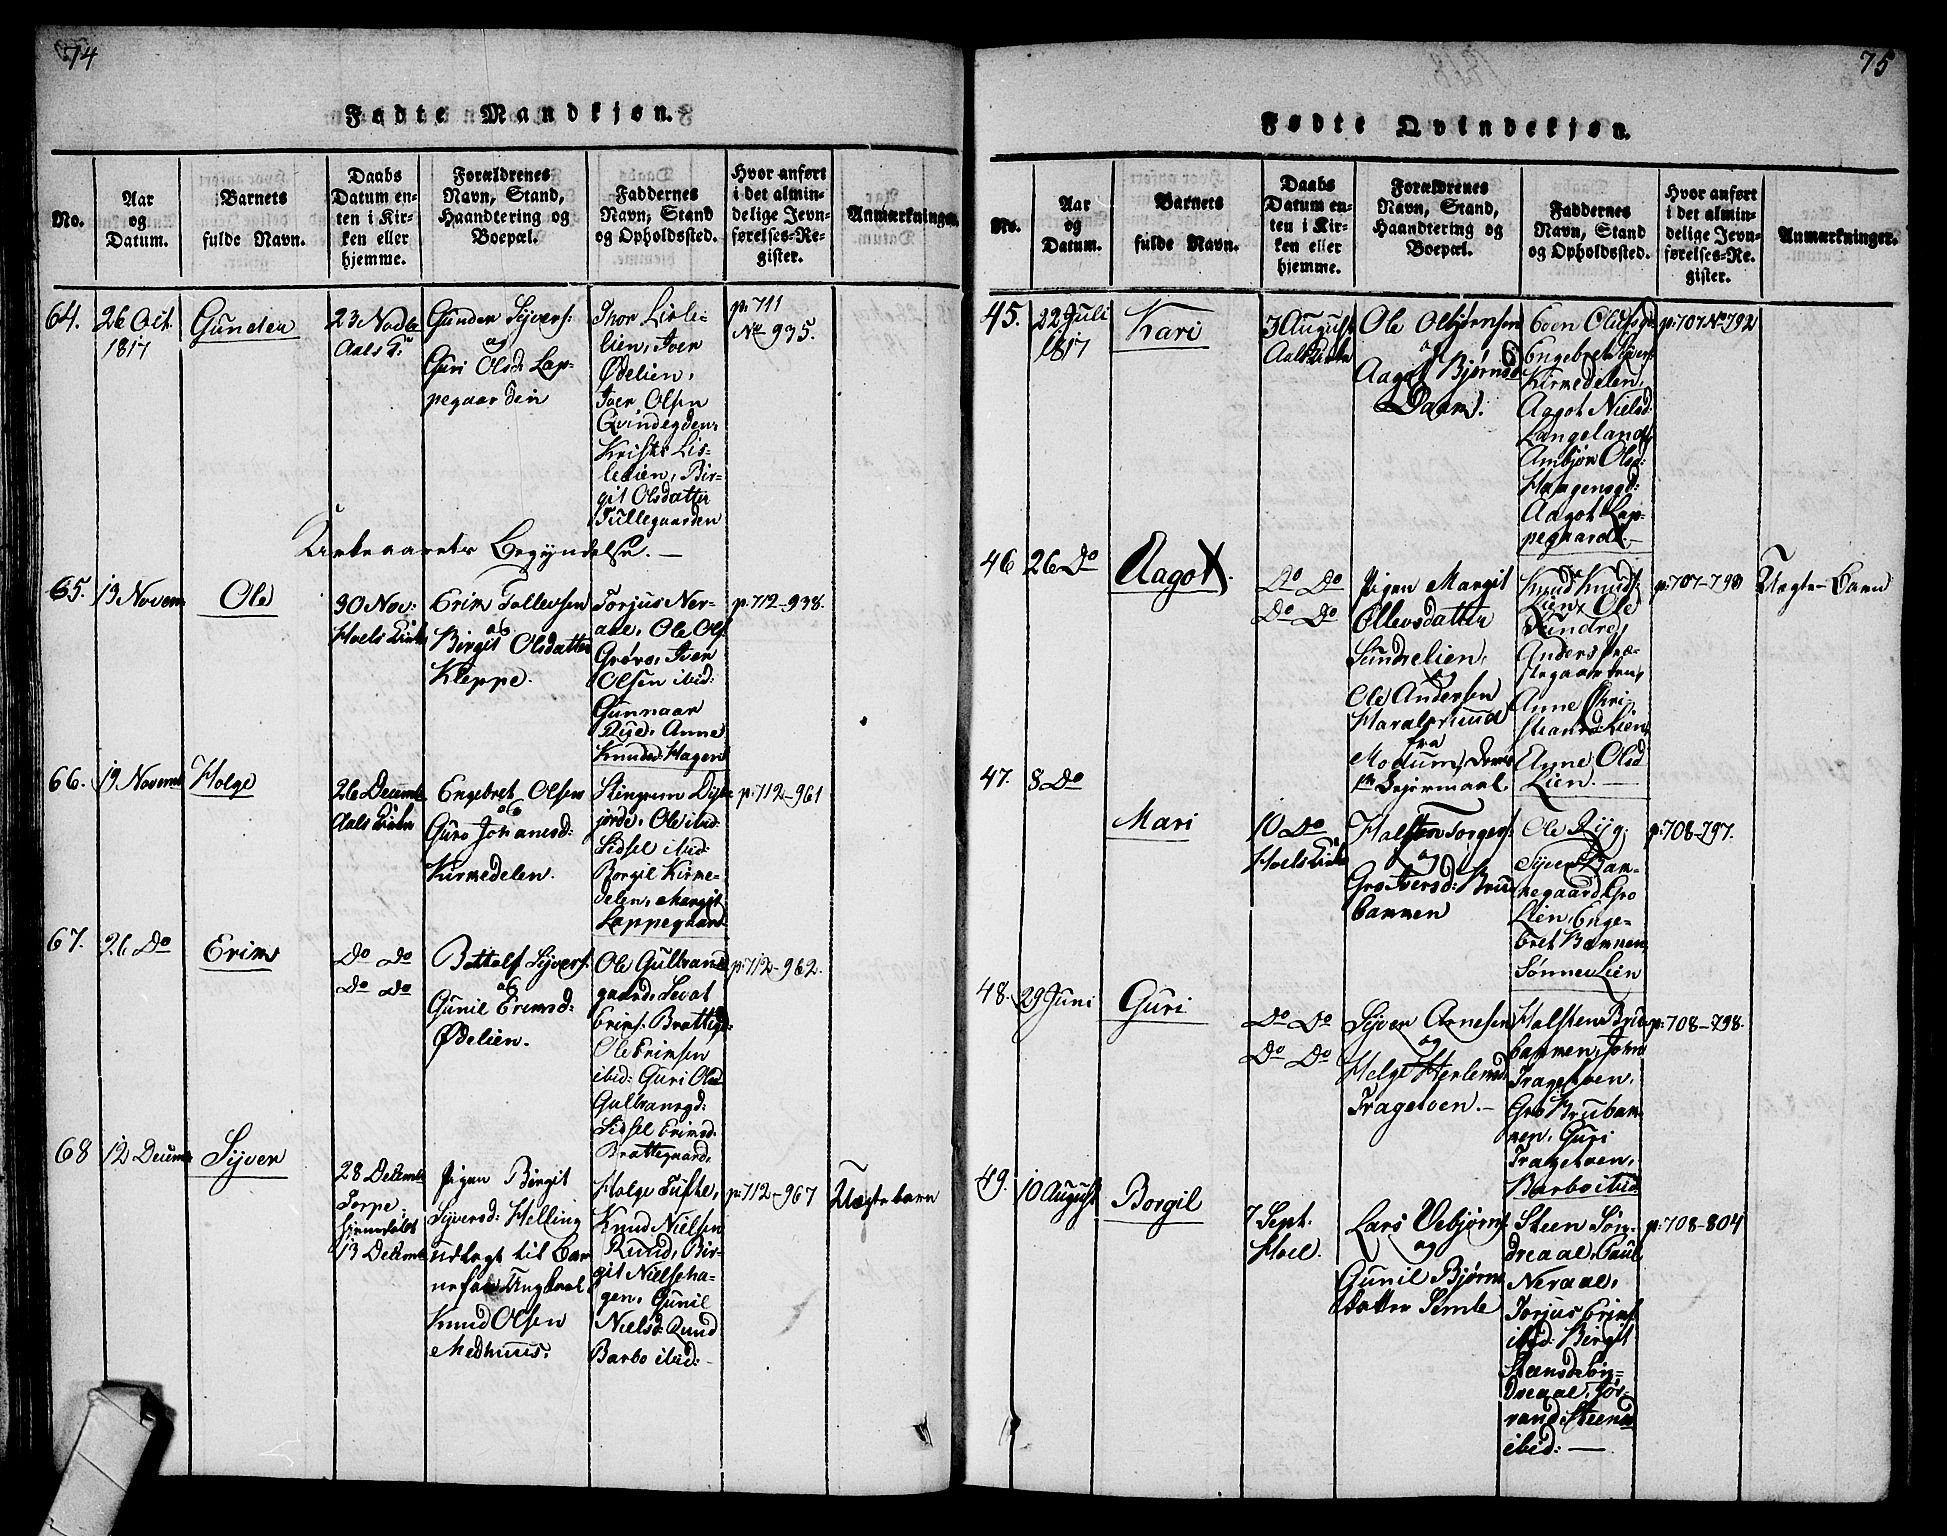 74
Fødte Mandkjøn.
No.
Aar
og
Datum.
Barnets
fulde Navn.
Daabs
Datum en-
ten i Kir-
ken eller
hjemme.
Forældrenes
Navn, Stand,
Haandtering og
Boepæl.
Faddernes
Navn, Stand
og Opholdssted.
Hvor anført
i det almin-
delige Jevn-
førelses-Re-
gister.
Anmærkninger.
64.
26 Oct.
1817
Gunder
23 Novbr
Aals K.
Gunder Sÿvers:
og
Guri Olsd: Lap-
pegaarden
Thor Lisle-
lien, Iver
Ødelien,
Iver Olsen
Qvindegden,
Kristi Lis-
lelien, Bir-
git Olsdatter
Tullegaarden
p: 711
No 935.
Kirkeaarets Begÿndelse. —
65.
13 Novem
Ole
30 Nov:
Hoels Kirke
Erik Tollevsen
og
Birgit Olsdatter
Kleppe.
Torjus Ner-
aae, Ole Ols
Grøve, Iver
Olsen ibid:
Gunnaar
Rue, Anne
Knudsd Hagen
p: 712-938.
66.
19 Novemb
Holge
26 Decemb
Aals Kirke
Engebret Olsen
og
Guro Johannsd:
Kirkedelen.
Stengrim
jorde, Ole ibid:
Sidsel ibid:
Borgil Kirke-
delen, Margit
Lappegaard
p: 712-961
67.
26 Do
Erik
Do Do
Do Do
Bottolf Sÿvers:
og
Gunil Eriksd:
Ødelien.
Ole Gulbrands
gaard, Sevat
Eriks. Brattegd:
Ole Eriksen
ibid: Guri Olsd
Gulbransgd:
Sidsel Eriksd:
Brattegaard,
p: 712-962.
68
12 Decemb
Sÿver
28 Decemb
Torpe,
hjemdøbt
13 Decemb
Pigen Birgit
Sÿversd: Helling
udlagt til Bar-
nefar Ungkarl
Knud Olsen
Medhuus.
Holge Tufte,
Knud Nielsen
Ruud, Bir-
git Nielsha-
gen, Gunil
Nielsd: Ruud
Barbo ibid:
p: 712-967
Uægte barn
75
Fødte Qvindekjøn.
No.
Aar
og
Datum.
Barnets
fulde Navn.
Daabs
Datum en-
ten i Kir-
ken eller
hjemme.
Forældrenes
Navn, Stand,
Haandtering og
Boepæl.
Faddernes
Navn, Stand
og Opholdssted.
Hvor anført
i det almin-
delige Jevn-
førelses-Re-
gister.
Anmærkninger.
45.
22 Juli
1817
Kari
3 August
Aals Kirke
Ole Asbjørnsen
og
Aagot Bjørnsd:
Engebret Sÿvers
Kirkedelen,
Aagot Nielsd:
Langeland,
Ambjør Olsd:
Haagensgd:
Aagot Lap-
pegaard. —
p: 707 No 792
46
26 Do
Aagot.
Do Do
Do Do
Pigen Margit
Ellevsdatter
Sundrelien,
og
Ole Andersen
Haralsrud
fra
Modum, Deres
1te Leiermaal.
Knud Knuds:
Lien, Ole
Sundre,
Anders Præ-
stegaarden,
Anne Chri-
stiansd: Lien,
Anne Olsd
Lien. —
p: 707-793
Uægte-Barn
47.
8 Do
Mari
10 Do
Hoels Kirke
Halsten Torgers:
og
Gro Iversd: Bru
bakken
Ole Rÿg:
Sÿver Bak-
kegaard, Gro
Lien, Enge-
bret Bakken,
Sønneu Lien
p: 708-797.
48.
29 Juni
Guri
Do Do
Do Do
Sÿver Arnesen
og
Helge Herlensd:
Tragetoen. —
Halsten Bru-
bakken, John
Tragetoen,
Gro Brubak-
ken, Guri
Tragetoen,
Barbo ibid:
p: 708-798.
49.
10 August
Borgil
7 Sept.
Hoel.
Lars Asbjørns:
og
Gunil Bjørns
datter Semle
Steen Søn-
dreaal, Paul
Neraal,
Torjus Eriks:
ibid: Birgit
Steensd: Søn-
dreaal, Jør-
rand Steensd
ibid: —
p: 708-804